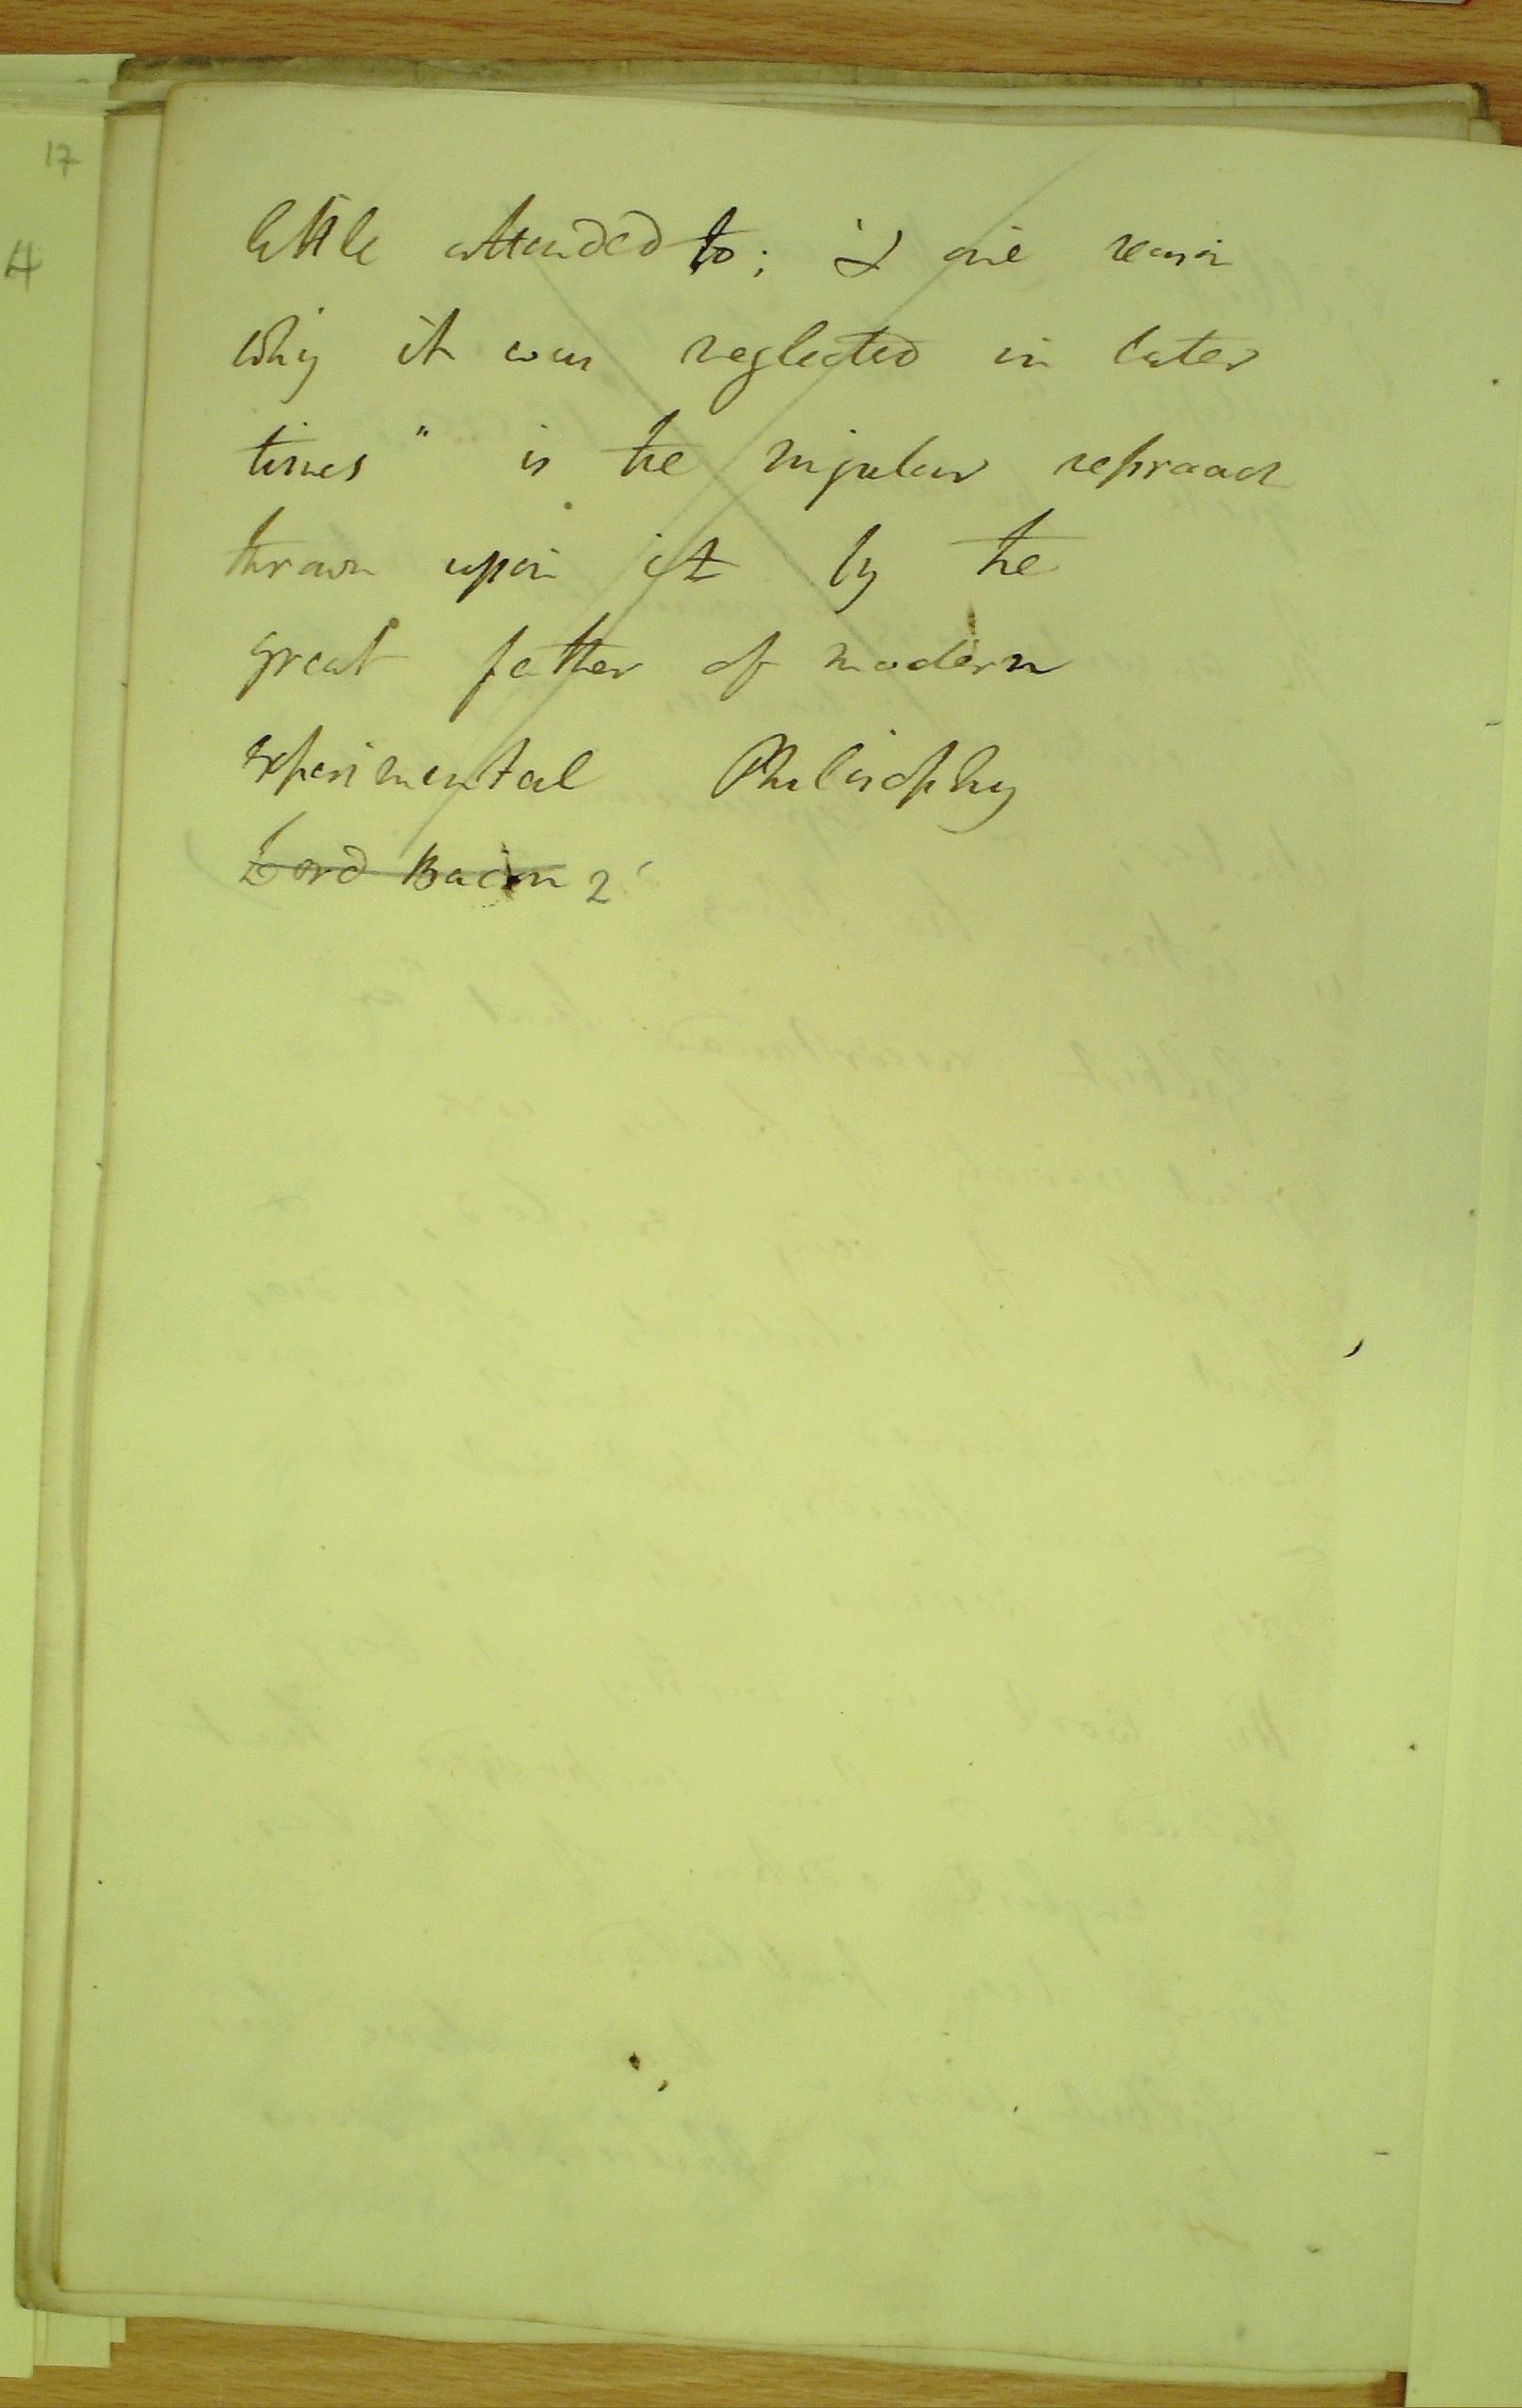 17
4
little attended to; & one reason
why it was neglected in later
times" is the singular reproach
thrown upon it by the
great father of modern
experimental Philosophy
Lord Bacon 2